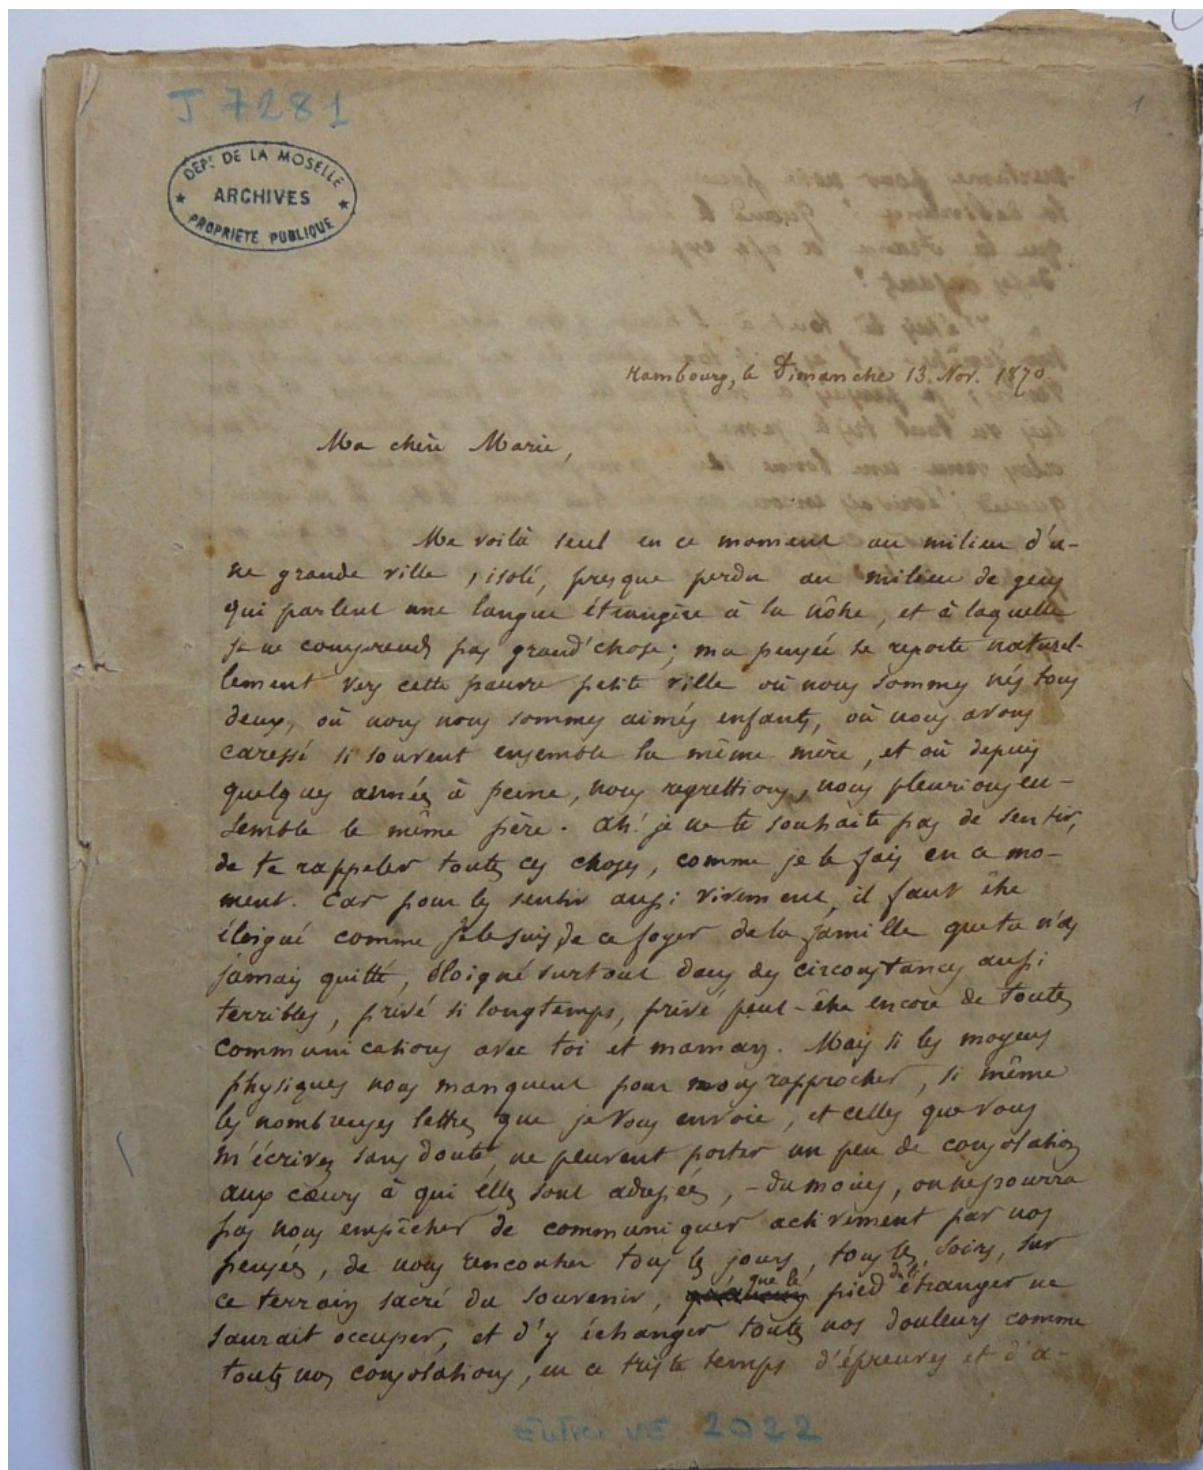 J 7281
1
DEPT DE LA MOSELLE
ARCHIVES
PROPRIETE PUBLIQUE
Hambourg, le Dimanche 13. Nov. 1870
Ma chère Marie,
Me voilà seul en ce moment au milieu d'u-
ne grande ville, isolé, presque perdu au milieu de gens
qui parlent une langue étrangère à la nôtre, et à laquelle
je ne comprends pas grand'chose; ma pensée se reporte naturel-
lement vers cette pauvre petite ville où nous sommes nés tous
deux, où nous nous sommes aimés enfants, où nous avons
caressé si souvent ensemble la même mère, et où depuis
quelques années à peine, nous regrettions, nous pleurions en-
semble le même père. Ah! je ne te souhaite pas de sentir,
de te rappeler toutes ces choses, comme je le fais en ce mo-
ment. Car pour les sentir aussi vivement, il faut être
éloigné comme je le suis de ce foyer de la famille que tu n'as
jamais quitté, éloigné surtout dans des circonstances aussi
terribles, privé si longtemps, privé peut-être encore de toutes
communications avec toi et maman. Mais si les moyens
physiques nous manquent pour nous rapprocher, si même
les nombreuses lettres que je vous envoie, et celles que vous
m'écrivez sans doute, ne peuvent porter un peu de consolation
aux cœurs à qui elles sont adressées, - du moins, on ne pourra
pas nous empêcher de communiquer activement par nos
pensées, de nous rencontrer tous les jours, tous les soirs, sur
ce terrain sacré du souvenir, que le pied de l'étranger ne
saurait occuper, et d'y échanger toutes nos douleurs comme
toutes nos consolations, en ce triste temps d'épreuves et d'a-
Entrée N° 2022